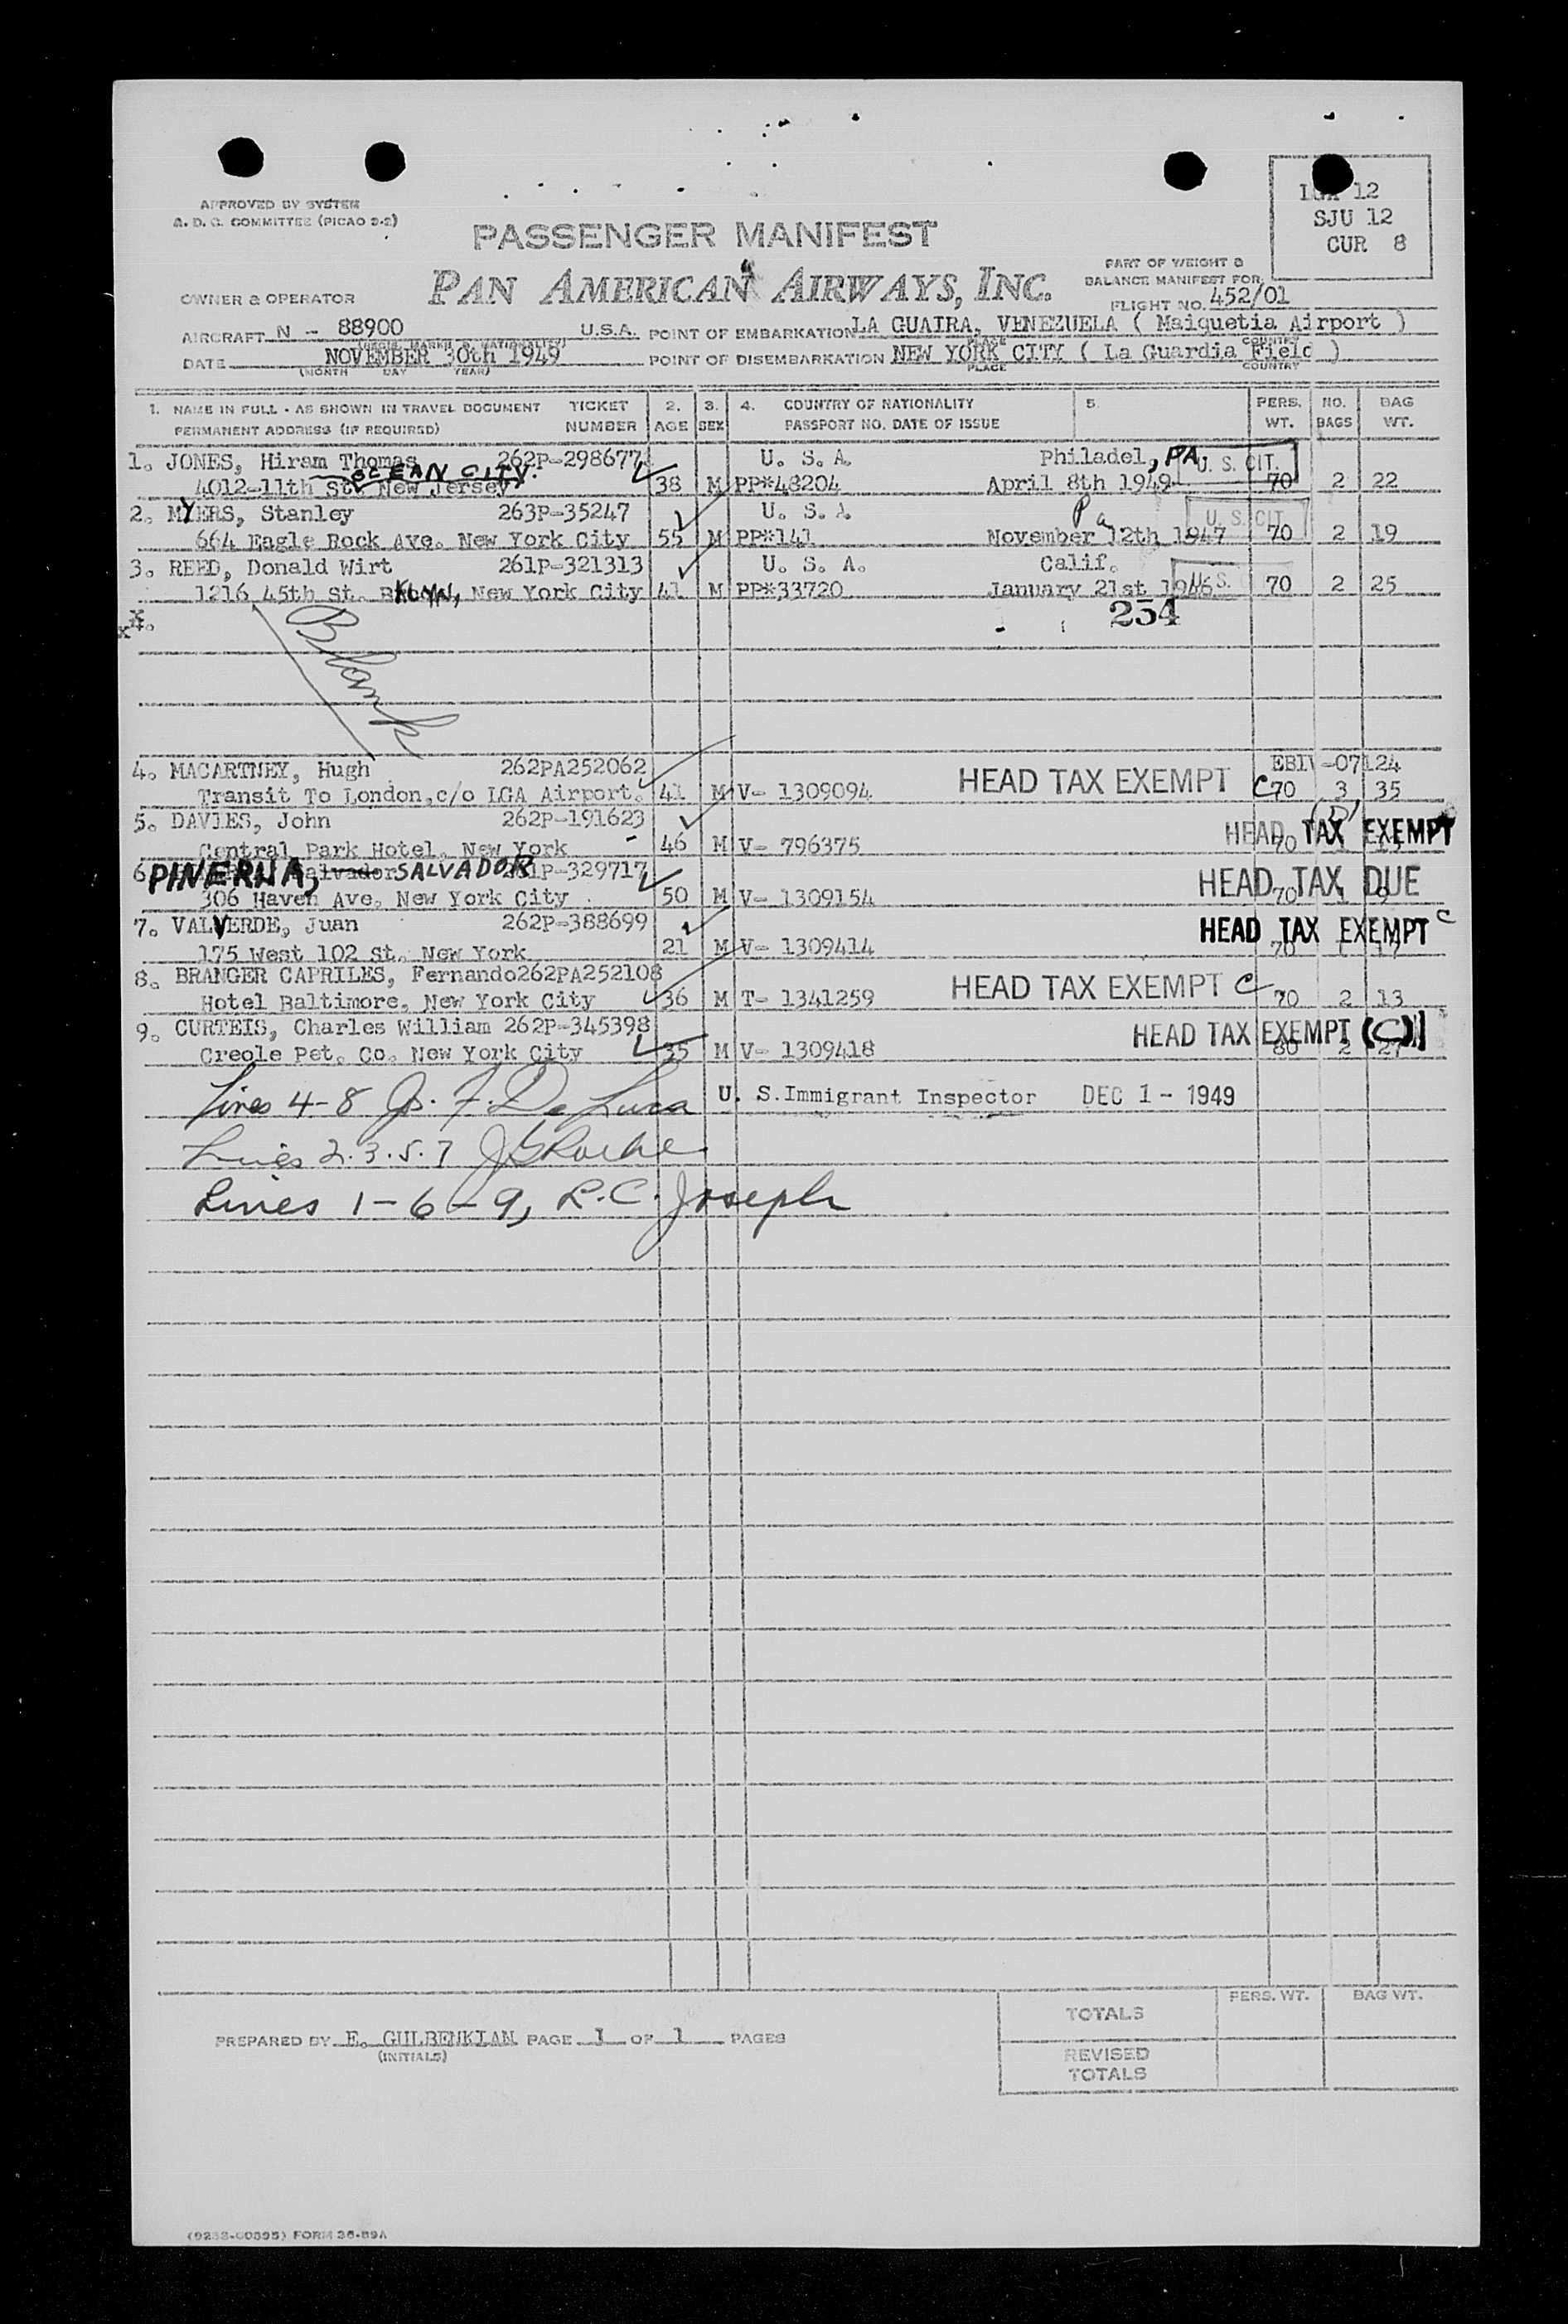 APPROVED BY SYSTEM
A. D. C. COMMITTEE (PICAO 3-2)
12
SJU 12
CUR 8
PASSENGER MANIFEST
PAN AMERICAN AIRWAYS, INC.
PART OF WEIGHT &
BALANCE MANIFEST FOR:
FLIGHT NO. 452/01
OWNER & OPERATOR
AIRCRAFT N - 88900 U.S.A. POINT OF EMBARKATION LA GUAIRA, VENEZUELA ( Maiquetia Airport )
PLACE COUNTRY
DATE NOVEMBER 30th 1949 POINT OF DISEMBARKATION NEW YORK CITY ( La Guardia Field )
(MONTH DAY YEAR) PLACE COUNTRY
1. NAME IN FULL - AS SHOWN IN TRAVEL DOCUMENT TICKET 2. 3. 4. COUNTRY OF NATIONALITY 5. PERS. NO. BAG
PERMANENT ADDRESS (IF REQUIRED) NUMBER AGE SEX PASSPORT NO. DATE OF ISSUE WT. BAGS WT.
1. JONES, Hiram Thomas 262P-298677 U. S. A. Philadel, PA. U. S. CIT.
OCEAN CITY.
4012-11th St. New Jersey 38 M PP*48204 April 8th 1949 70 2 22
2. MYERS, Stanley 263P-35247 U. S. A. Pa U. S. CIT
664 Eagle Rock Ave. New York City 55 M PP*141 November 12th 1947 70 2 19
3. REED, Donald Wirt 261P-321313 U. S. A. Calif.
1216 45th St. BKLYN, New York City 41 M PP*33720 January 21st 1946 U. S. 70 2 25
234
Blank
4. MACARTNEY, Hugh 262PA252062 HEAD TAX EXEMPT C -07124
Transit To London,c/o LGA Airport. 41 M V- 1309094 70 3 35
5. DAVIES, John 262P-191623 HEAD TAX EXEMPT (D)
Central Park Hotel, New York 46 M V- 796375 70
6. PINERUA, SALVADOR 261P-329717 HEAD TAX DUE
306 Haven Ave. New York City 50 M V- 1309154 70 1 9
7. VALVERDE, Juan 262P-388699 HEAD TAX EXEMPT C
175 West 102 St. New York 21 M V- 1309414 70
8. BRANGER CAPRILES, Fernando 262PA252108 HEAD TAX EXEMPT C
Hotel Baltimore, New York City 36 M T- 1341259 70 2 13
9. CURTEIS, Charles William 262P-345398 HEAD TAX EXEMPT (C)
Creole Pet. Co. New York City 35 M V- 1309418 80 2 27
Lines 4-8 F. De Luca U. S. Immigrant Inspector DEC 1 - 1949
Lines 2.3.5.7
Lines 1-6-9, R.C. Joseph
PERS. WT. BAG WT.
TOTALS
REVISED
TOTALS
PREPARED BY E. GULBENKIAN PAGE 1 OF 1 PAGES
(INITIALS)
FORM 36-89A